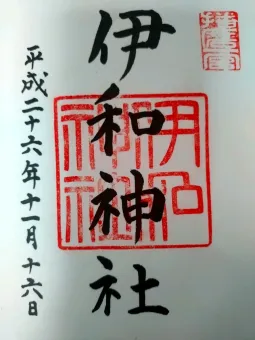 伊和神社
平成二十六年十一月十六日
伊和
神社